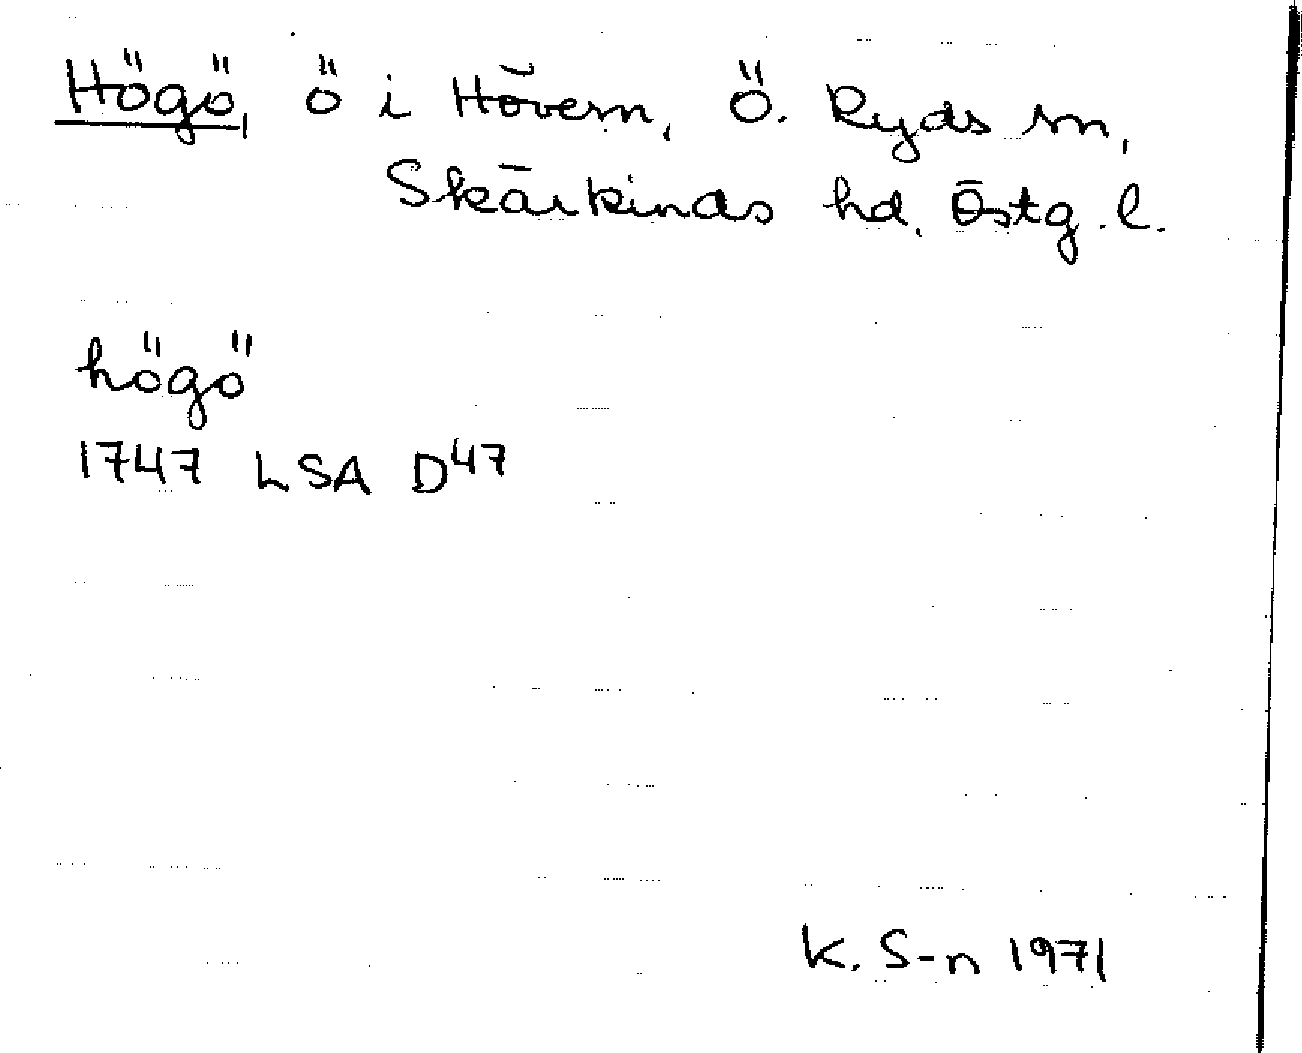 Högö, ö i Hövern, Ö. Ryds sn,
Skärkinds hd, Östg. l.
högö
1747 LSA D47
K. S-n 1971